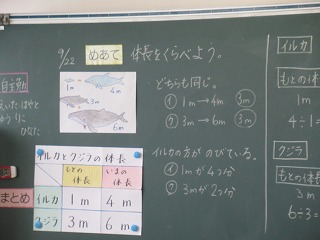 9/22 めあて 体長をくらべよう。
1m
4m
3m
6m
イルカとクジラの体長
もとの体長
いまの体長
イルカ 1m 4m
クジラ 3m 6m
まとめ
どちらも同じ。
イ 1m→4m 3m
ク 3m→6m 3m
イルカの方がのびている。
イ 1mが4つ分
ク 3mが2つ分
イルカ
もとの体長
1m
4÷1=
クジラ
もとの体長
3m
6÷3=